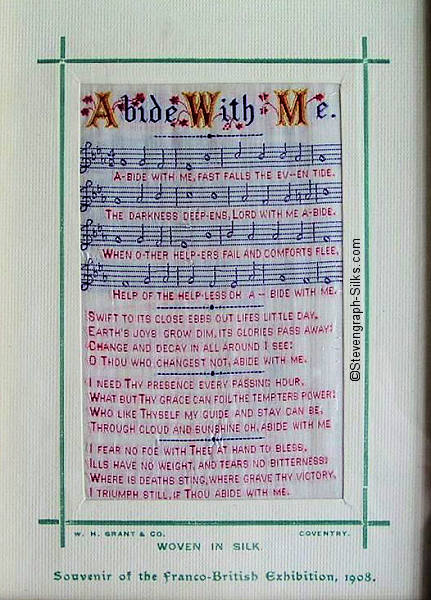 Abide With Me.
A-BIDE WITH ME, FAST FALLS THE EV--EN TIDE.
THE DARKNESS DEEP-ENS, LORD WITH ME A-BIDE.
WHEN O-THER HELP-ERS FAIL AND COMFORTS FLEE,
HELP OF THE HELP-LESS OH A -- BIDE WITH ME.
SWIFT TO ITS CLOSE EBBS OUT LIFES LITTLE DAY,
EARTH'S JOYS GROW DIM, ITS GLORIES PASS AWAY:
CHANGE AND DECAY IN ALL AROUND I SEE:
O THOU WHO CHANGEST NOT, ABIDE WITH ME.
I NEED THY PRESENCE EVERY PASSING HOUR,
WHAT BUT THY GRACE CAN FOIL THE TEMPTERS POWER:
WHO LIKE THYSELF MY GUIDE AND STAY CAN BE,
THROUGH CLOUD AND SUNSHINE OH, ABIDE WITH ME
I FEAR NO FOE WITH THEE AT HAND TO BLESS,
ILLS HAVE NO WEIGHT, AND TEARS NO BITTERNESS:
WHERE IS DEATHS STING, WHERE GRAVE THY VICTORY,
I TRIUMPH STILL, IF THOU ABIDE WITH ME.
W. H. GRANT & CO. COVENTRY.
WOVEN IN SILK.
Souvenir of the Franco-British Exhibition, 1908.
©Stevengraph-Silks.com